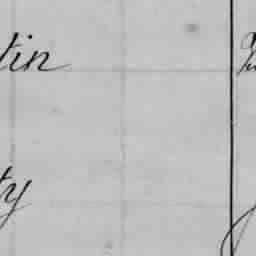 tin
ty